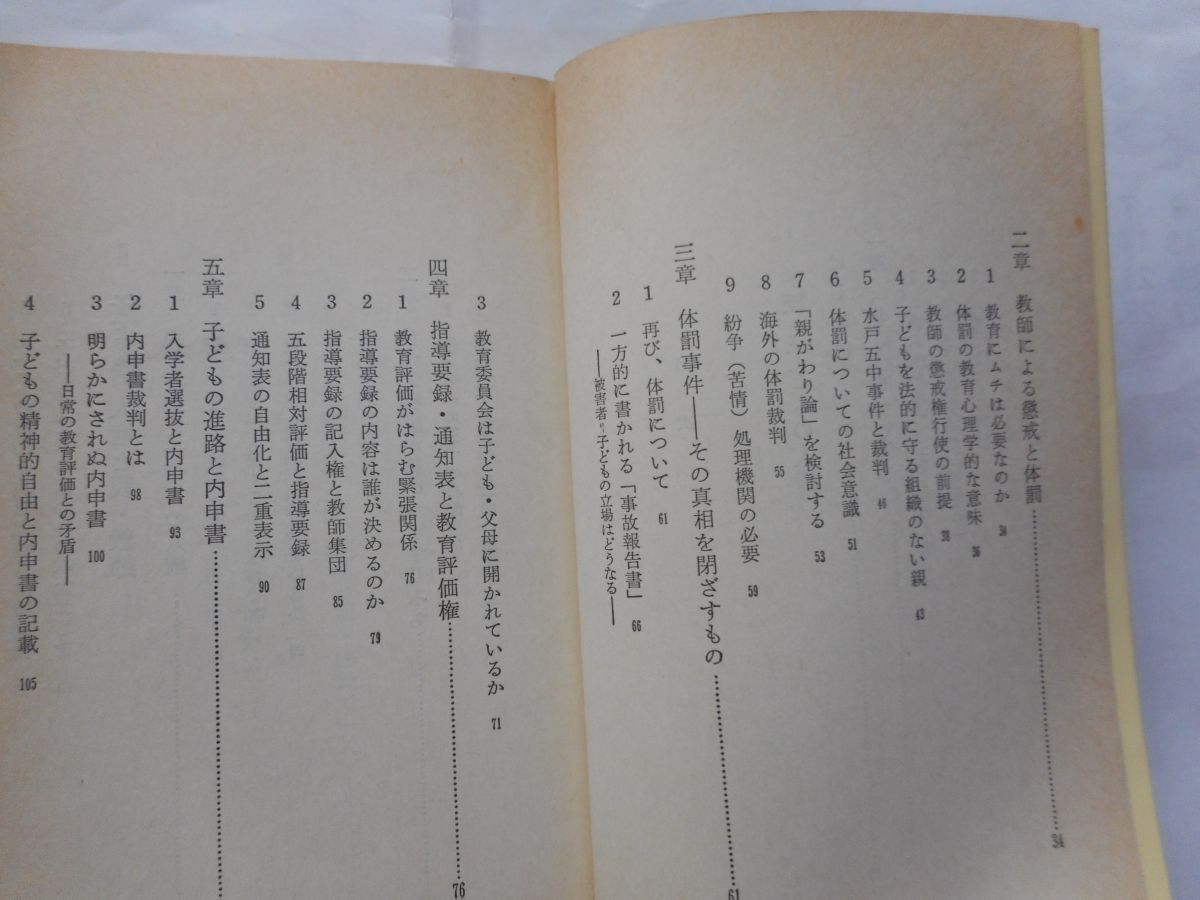 二章 教師による懲戒と体罰……34
1 教育にムチは必要なのか 34
2 体罰の教育心理学的な意味 36
3 教師の懲戒権行使の前提 38
4 子どもを法的に守る組織のない親 43
5 水戸五中事件と裁判 46
6 体罰についての社会意識 51
7 「親がわり論」を検討する 53
8 海外の体罰裁判 55
9 紛争(苦情)処理機関の必要 59
三章 体罰事件——その真相を閉ざすもの……61
1 再び、体罰について 61
2 一方的に書かれる「事故報告書」 66
——被害者=子どもの立場はどうなる——
3 教育委員会は子ども・父母に開かれているか 71
四章 指導要録・通知表と教育評価権……76
1 教育評価がはらむ緊張関係 76
2 指導要録の内容は誰が決めるのか 79
3 指導要録の記入権と教師集団 85
4 五段階相対評価と指導要録 87
5 通知表の自由化と二重表示 90
五章 子どもの進路と内申書……
1 入学者選抜と内申書 93
2 内申書裁判とは 98
3 明らかにされぬ内申書 100
——日常の教育評価との矛盾——
4 子どもの精神的自由と内申書の記載 105